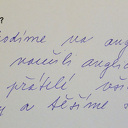 ?
odíme na ang
naučili anglic
přátelé, vš
y a těšíme s